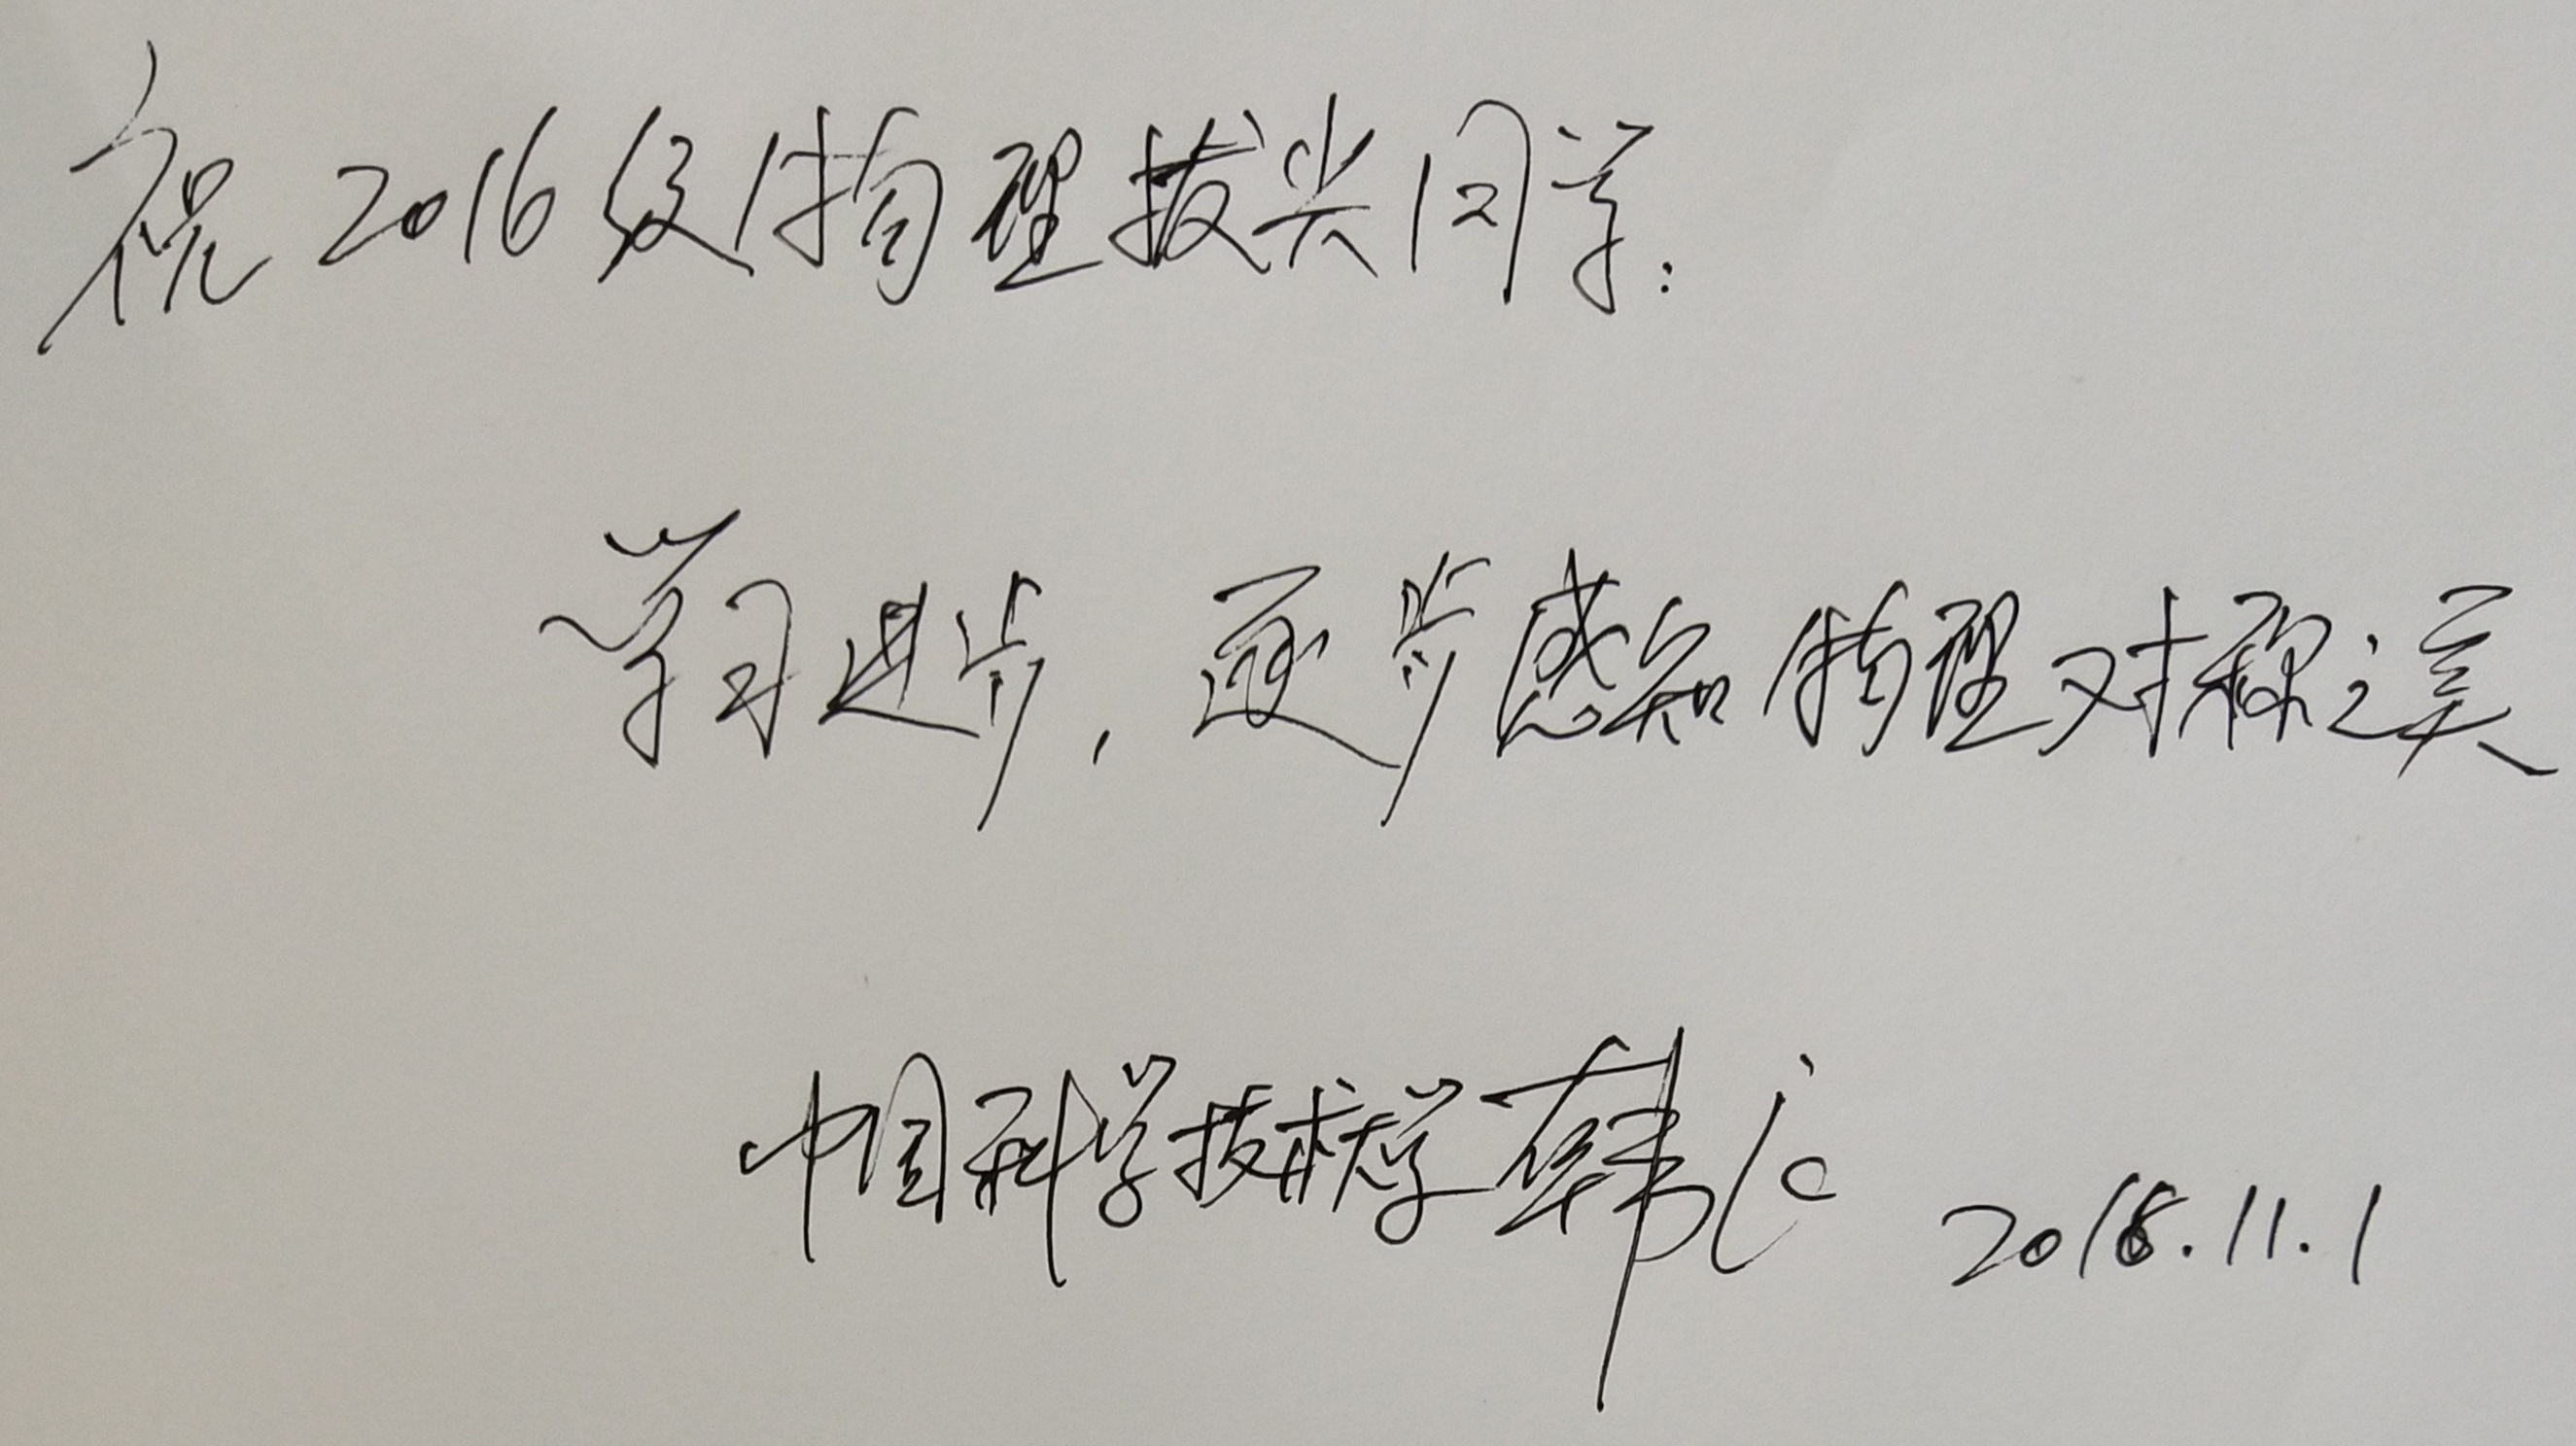 祝2016级物理拔尖同学：
学习进步，逐步感知物理对称之美
中国科学技术大学 韩良 2018.11.1